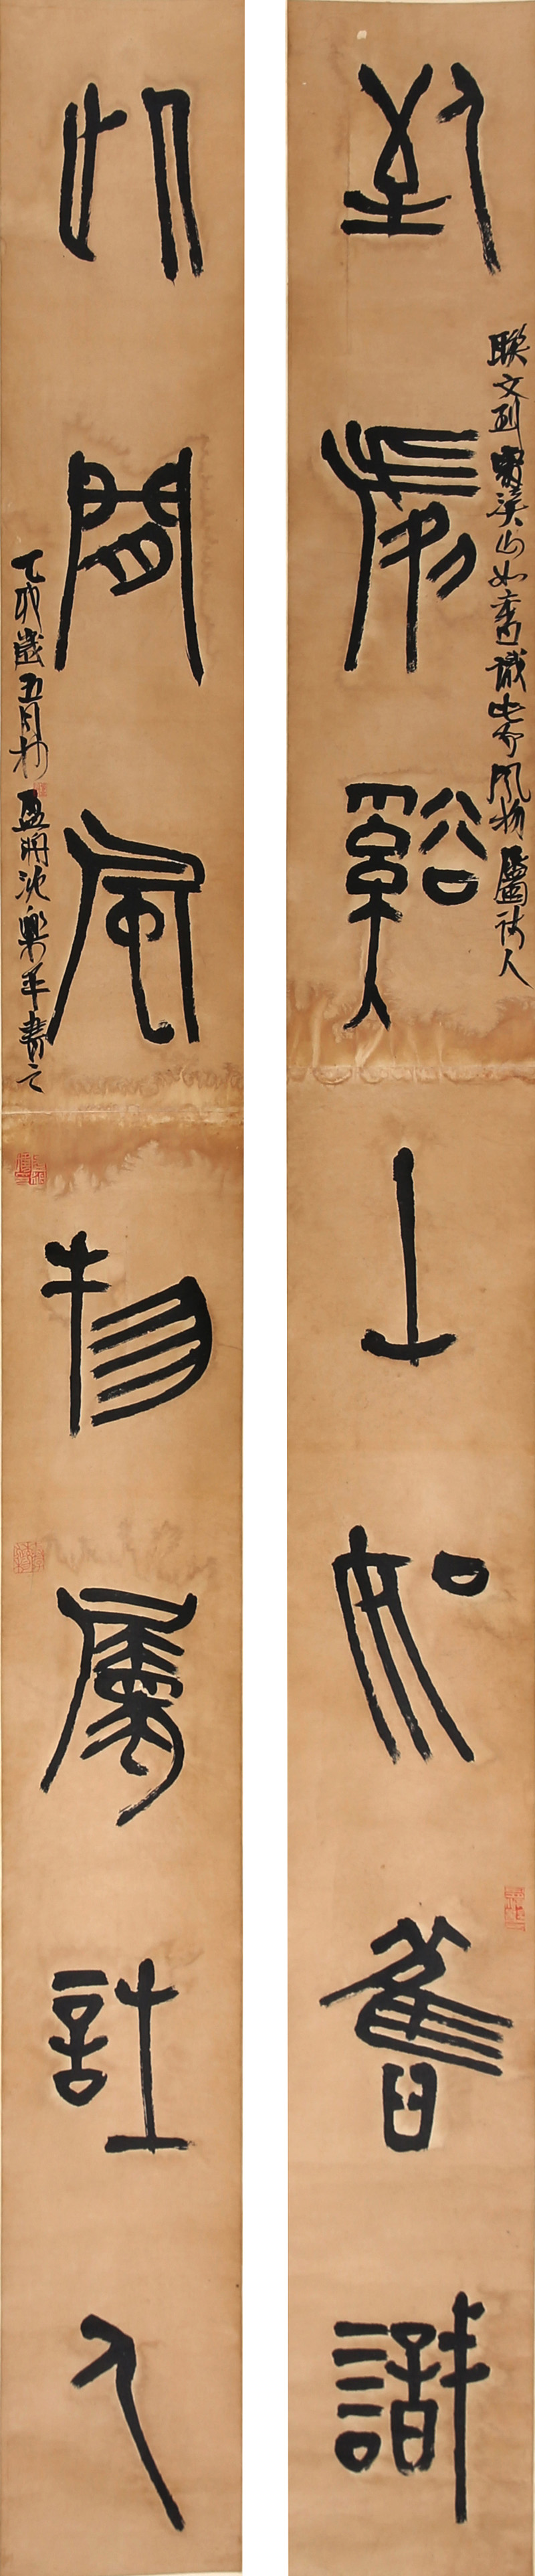 到處谿山如舊識
聯文到處溪山如舊識此間風物屬詩人
此間風物屬詩人
歲五月 沈樂平書之